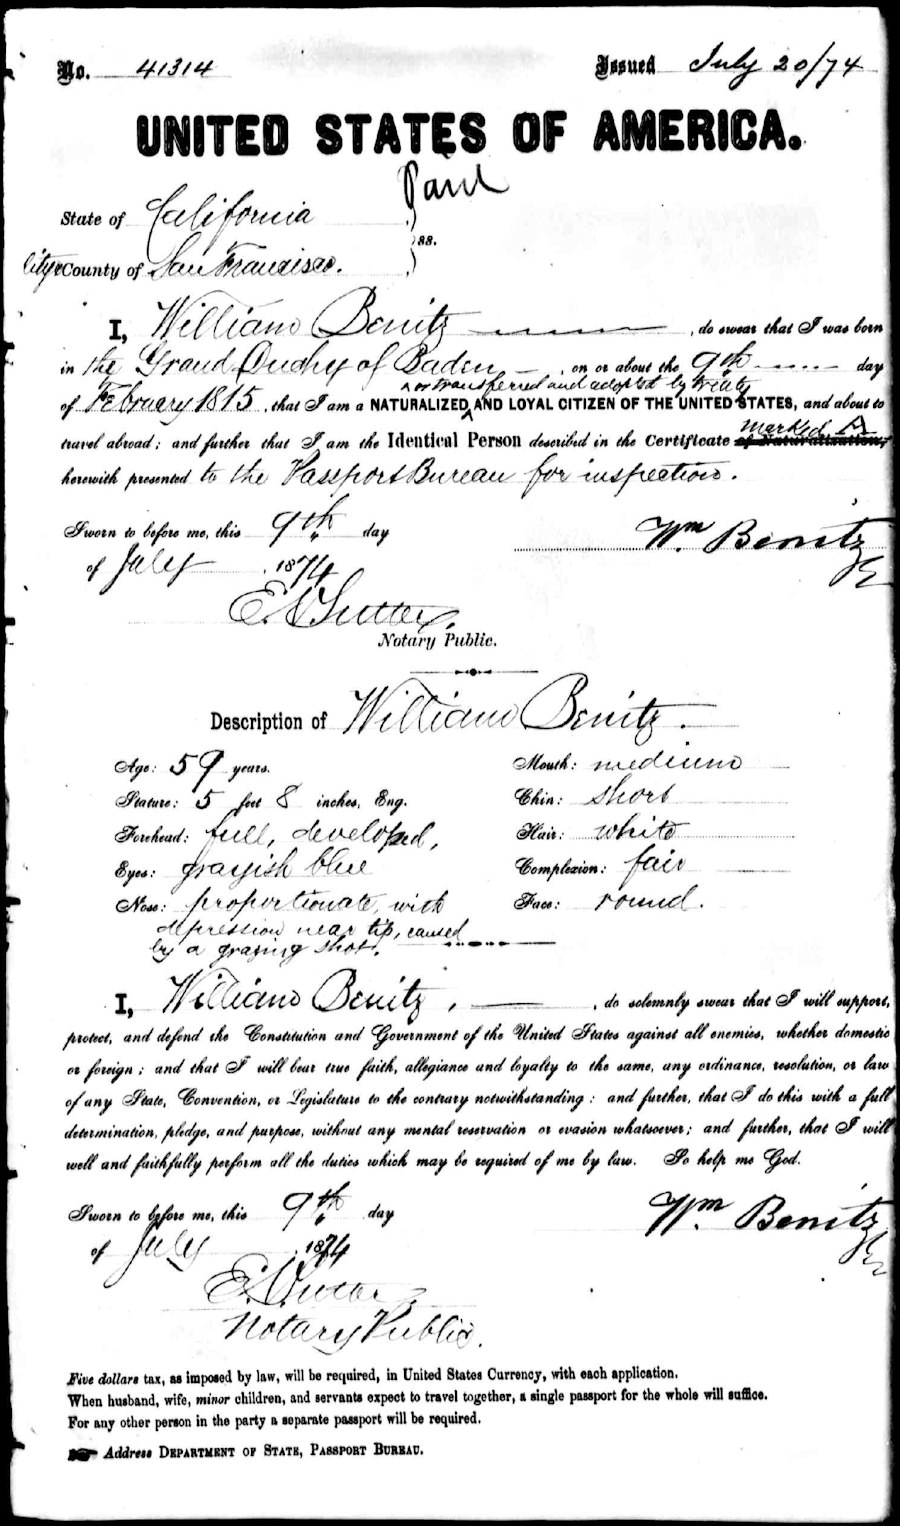 No. 41314 Issued July 20/74
UNITED STATES OF AMERICA.
Paid
State of California
ss.
City & County of San Francisco.
I, William Benitz, do swear that I was born
in the Grand Duchy of Baden, on or about the 9th day
or transferred and adopted by treaty
of February 1815, that I am a NATURALIZED ^ AND LOYAL CITIZEN OF THE UNITED STATES, and about to
marked A
travel abroad; and further that I am the Identical Person described in the Certificate of Naturalization,
herewith presented to the Passport Bureau for inspection.
Sworn to before me, this 9th day
Wm Benitz
of July, 1874
Notary Public.
Description of William Benitz.
Age: 59 years. Mouth: medium
Stature: 5 feet 8 inches, Eng. Chin: short
Forehead: full, developed, Hair: white
Eyes: grayish blue Complexion: fair
Nose: proportionate, with Face: round.
depression near tip, caused
by a grazing shot.
I, William Benitz, do solemnly swear that I will support,
protect, and defend the Constitution and Government of the United States against all enemies, whether domestic
or foreign; and that I will bear true faith, allegiance and loyalty to the same, any ordinance, resolution, or law
of any State, Convention, or Legislature to the contrary notwithstanding: and further, that I do this with a full
determination, pledge, and purpose, without any mental reservation or evasion whatsoever; and further, that I will
well and faithfully perform all the duties which may be required of me by law. So help me God.
Sworn to before me, this 9th day
Wm Benitz
of July, 1874
Notary Public.
Five dollars tax, as imposed by law, will be required, in United States Currency, with each application.
When husband, wife, minor children, and servants expect to travel together, a single passport for the whole will suffice.
For any other person in the party a separate passport will be required.
Address DEPARTMENT OF STATE, PASSPORT BUREAU.